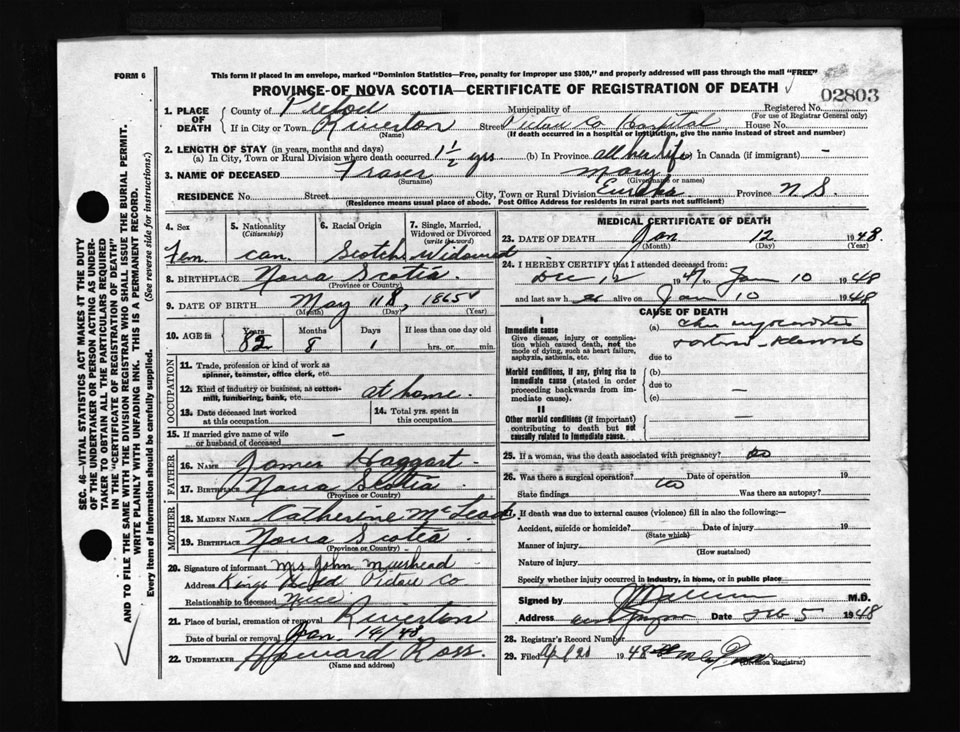 FORM 6
This form if placed in an envelope, marked "Dominion Statistics—Free, penalty for improper use $300," and properly addressed will pass through the mail "FREE"
PROVINCE OF NOVA SCOTIA—CERTIFICATE OF REGISTRATION OF DEATH
02803
1. PLACE OF DEATH
County of Pictou Municipality of Registered No.
(For use of Registrar General only)
If in City or Town Riverton Street Pictou Co Hospital House No.
(Name) (If death occurred in a hospital or institution, give the name instead of street and number)
2. LENGTH OF STAY (in years, months and days)
(a) In City, Town or Rural Division where death occurred 1 1/2 yrs (b) In Province all her life (c) In Canada (if immigrant) —
3. NAME OF DECEASED Fraser Mary
(Surname) (Given name or names)
RESIDENCE No. Street City, Town or Rural Division Eureka Province N.S.
(Residence means usual place of abode. Post Office Address for residents in rural parts not sufficient)
4. Sex Fem.
5. Nationality (Citizenship) Can.
6. Racial Origin Scotch
7. Single, Married, Widowed or Divorced (write the word) Widowed
8. BIRTHPLACE Nova Scotia.
(Province or Country)
9. DATE OF BIRTH May 1865
(Month) (Day) (Year)
10. AGE in Years 82 Months 8 Days 1 If less than one day old hrs. or min.
OCCUPATION
11. Trade, profession or kind of work as spinner, teamster, office clerk, etc.
12. Kind of industry or business, as cotton-mill, lumbering, bank, etc. at home.
13. Date deceased last worked at this occupation
14. Total yrs. spent in this occupation
15. If married give name of wife or husband of deceased —
FATHER
16. NAME James Haggart
17. BIRTHPLACE Nova Scotia
(Province or Country)
MOTHER
18. MAIDEN NAME Catherine McLeod
19. BIRTHPLACE Nova Scotia
(Province or Country)
20. Signature of informant Mrs John Muirhead
Address Kings Head Pictou Co
Relationship to deceased Niece
21. Place of burial, cremation or removal Riverton
Date of burial or removal Jan. 14/48
22. UNDERTAKER Howard Ross.
(Name and address)
MEDICAL CERTIFICATE OF DEATH
23. DATE OF DEATH Jan 12 1948.
(Month) (Day) (Year)
24. I HEREBY CERTIFY that I attended deceased from:
Dec 12 1947 Jan 10 1948
and last saw h alive on Jan 10 1948
CAUSE OF DEATH
I
Immediate cause
Give disease, injury or complication which caused death, not the mode of dying, such as heart failure, asphyxia, asthenia, etc.
(a) myocarditis
due to
Morbid conditions, if any, giving rise to immediate cause (stated in order proceeding backwards from immediate cause).
(b)
due to —
(c)
II
Other morbid conditions (if important) contributing to death but not causally related to immediate cause. —
25. If a woman, was the death associated with pregnancy? no
26. Was there a surgical operation? no Date of operation 19
State findings Was there an autopsy?
27. If death was due to external causes (violence) fill in also the following:—
Accident, suicide or homicide? Date of injury 19
(State which)
Manner of injury
(How sustained)
Nature of injury
Specify whether injury occurred in industry, in home, or in public place
Signed by M.D.
Address Date Feb 5 1948
28. Registrar's Record Number
29. Filed 1948
(Division Registrar)
SEC. 46—VITAL STATISTICS ACT MAKES IT THE DUTY
OF THE UNDERTAKER OR PERSON ACTING AS UNDER-
TAKER TO OBTAIN ALL THE PARTICULARS REQUIRED
IN THE "CERTIFICATE OF REGISTRATION OF DEATH"
AND TO FILE THE SAME WITH THE DIVISION REGISTRAR WHO SHALL ISSUE THE BURIAL PERMIT.
WRITE PLAINLY WITH UNFADING INK. THIS IS A PERMANENT RECORD.
Every item of information should be carefully supplied. (See reverse side for instructions.)